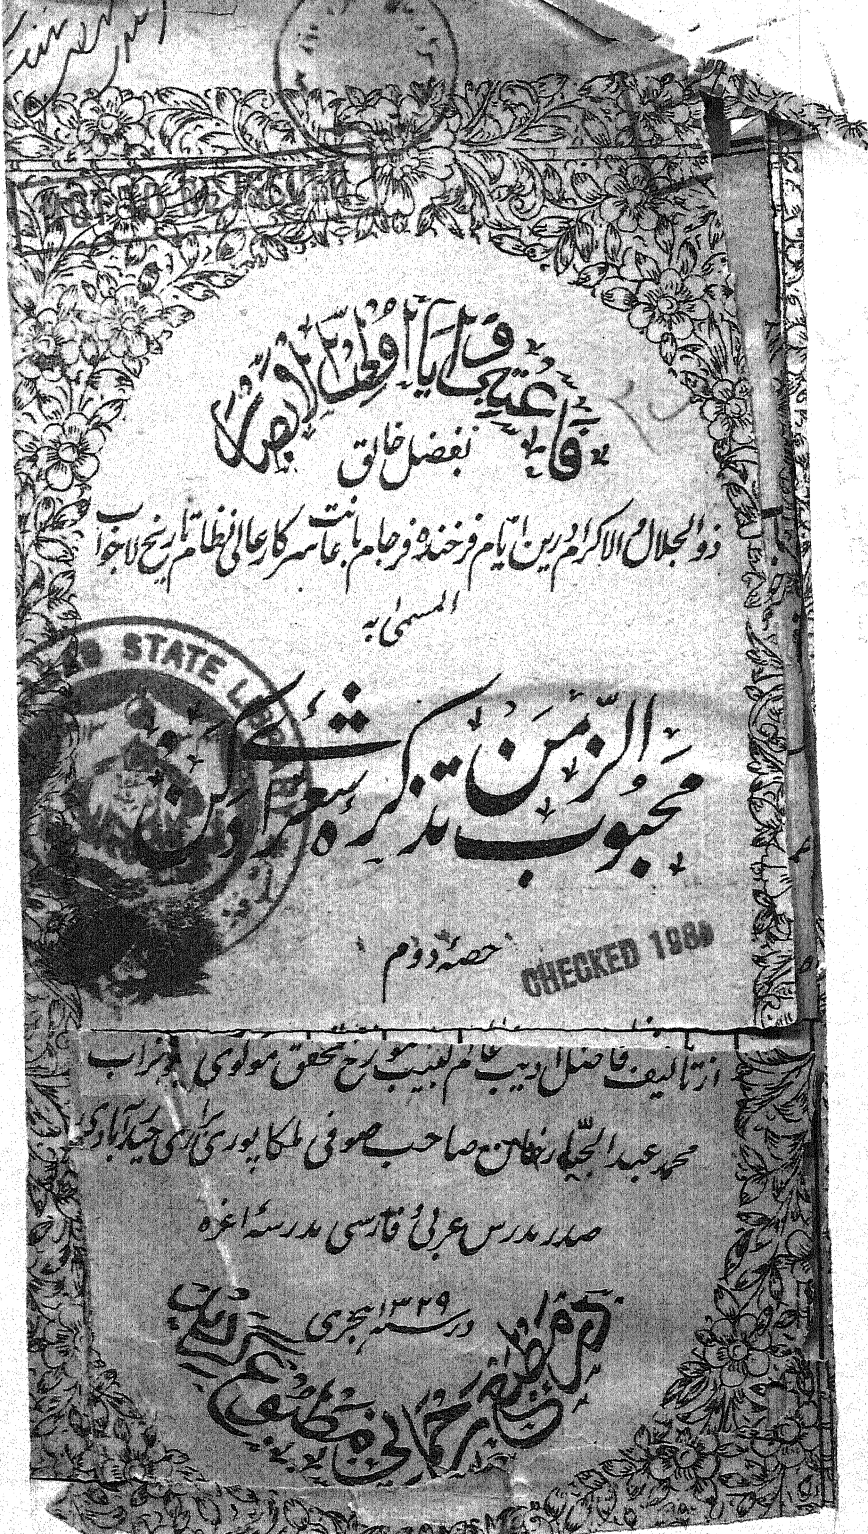 فَاعْتَبِرُوا يَا أُولِي الْأَبْصَارِ
بفضل خالق
ذوالجلال والاکرام درین ایّام فرخنده فرجام باعانت سرکار عالی نظام تاریخ لاجواب
المسمیٰ به
محبوب الزّمن تذکرهٔ شعرائے دکن
حصهٔ دوم
STATE LIBRARY
CHECKED 1980
از تألیف فاضل ادیب عالم لبیب مورخ محقق مولوی ابوتراب
محمد عبدالجبّار خان صاحب صوفی ملکاپوری براری حیدرآبادی
صدر مدرس عربی فارسی مدرسهٔ اعزه
در سنه ۱۳۲۹ هجری
در مطبع رحمانی مطبوع گردید